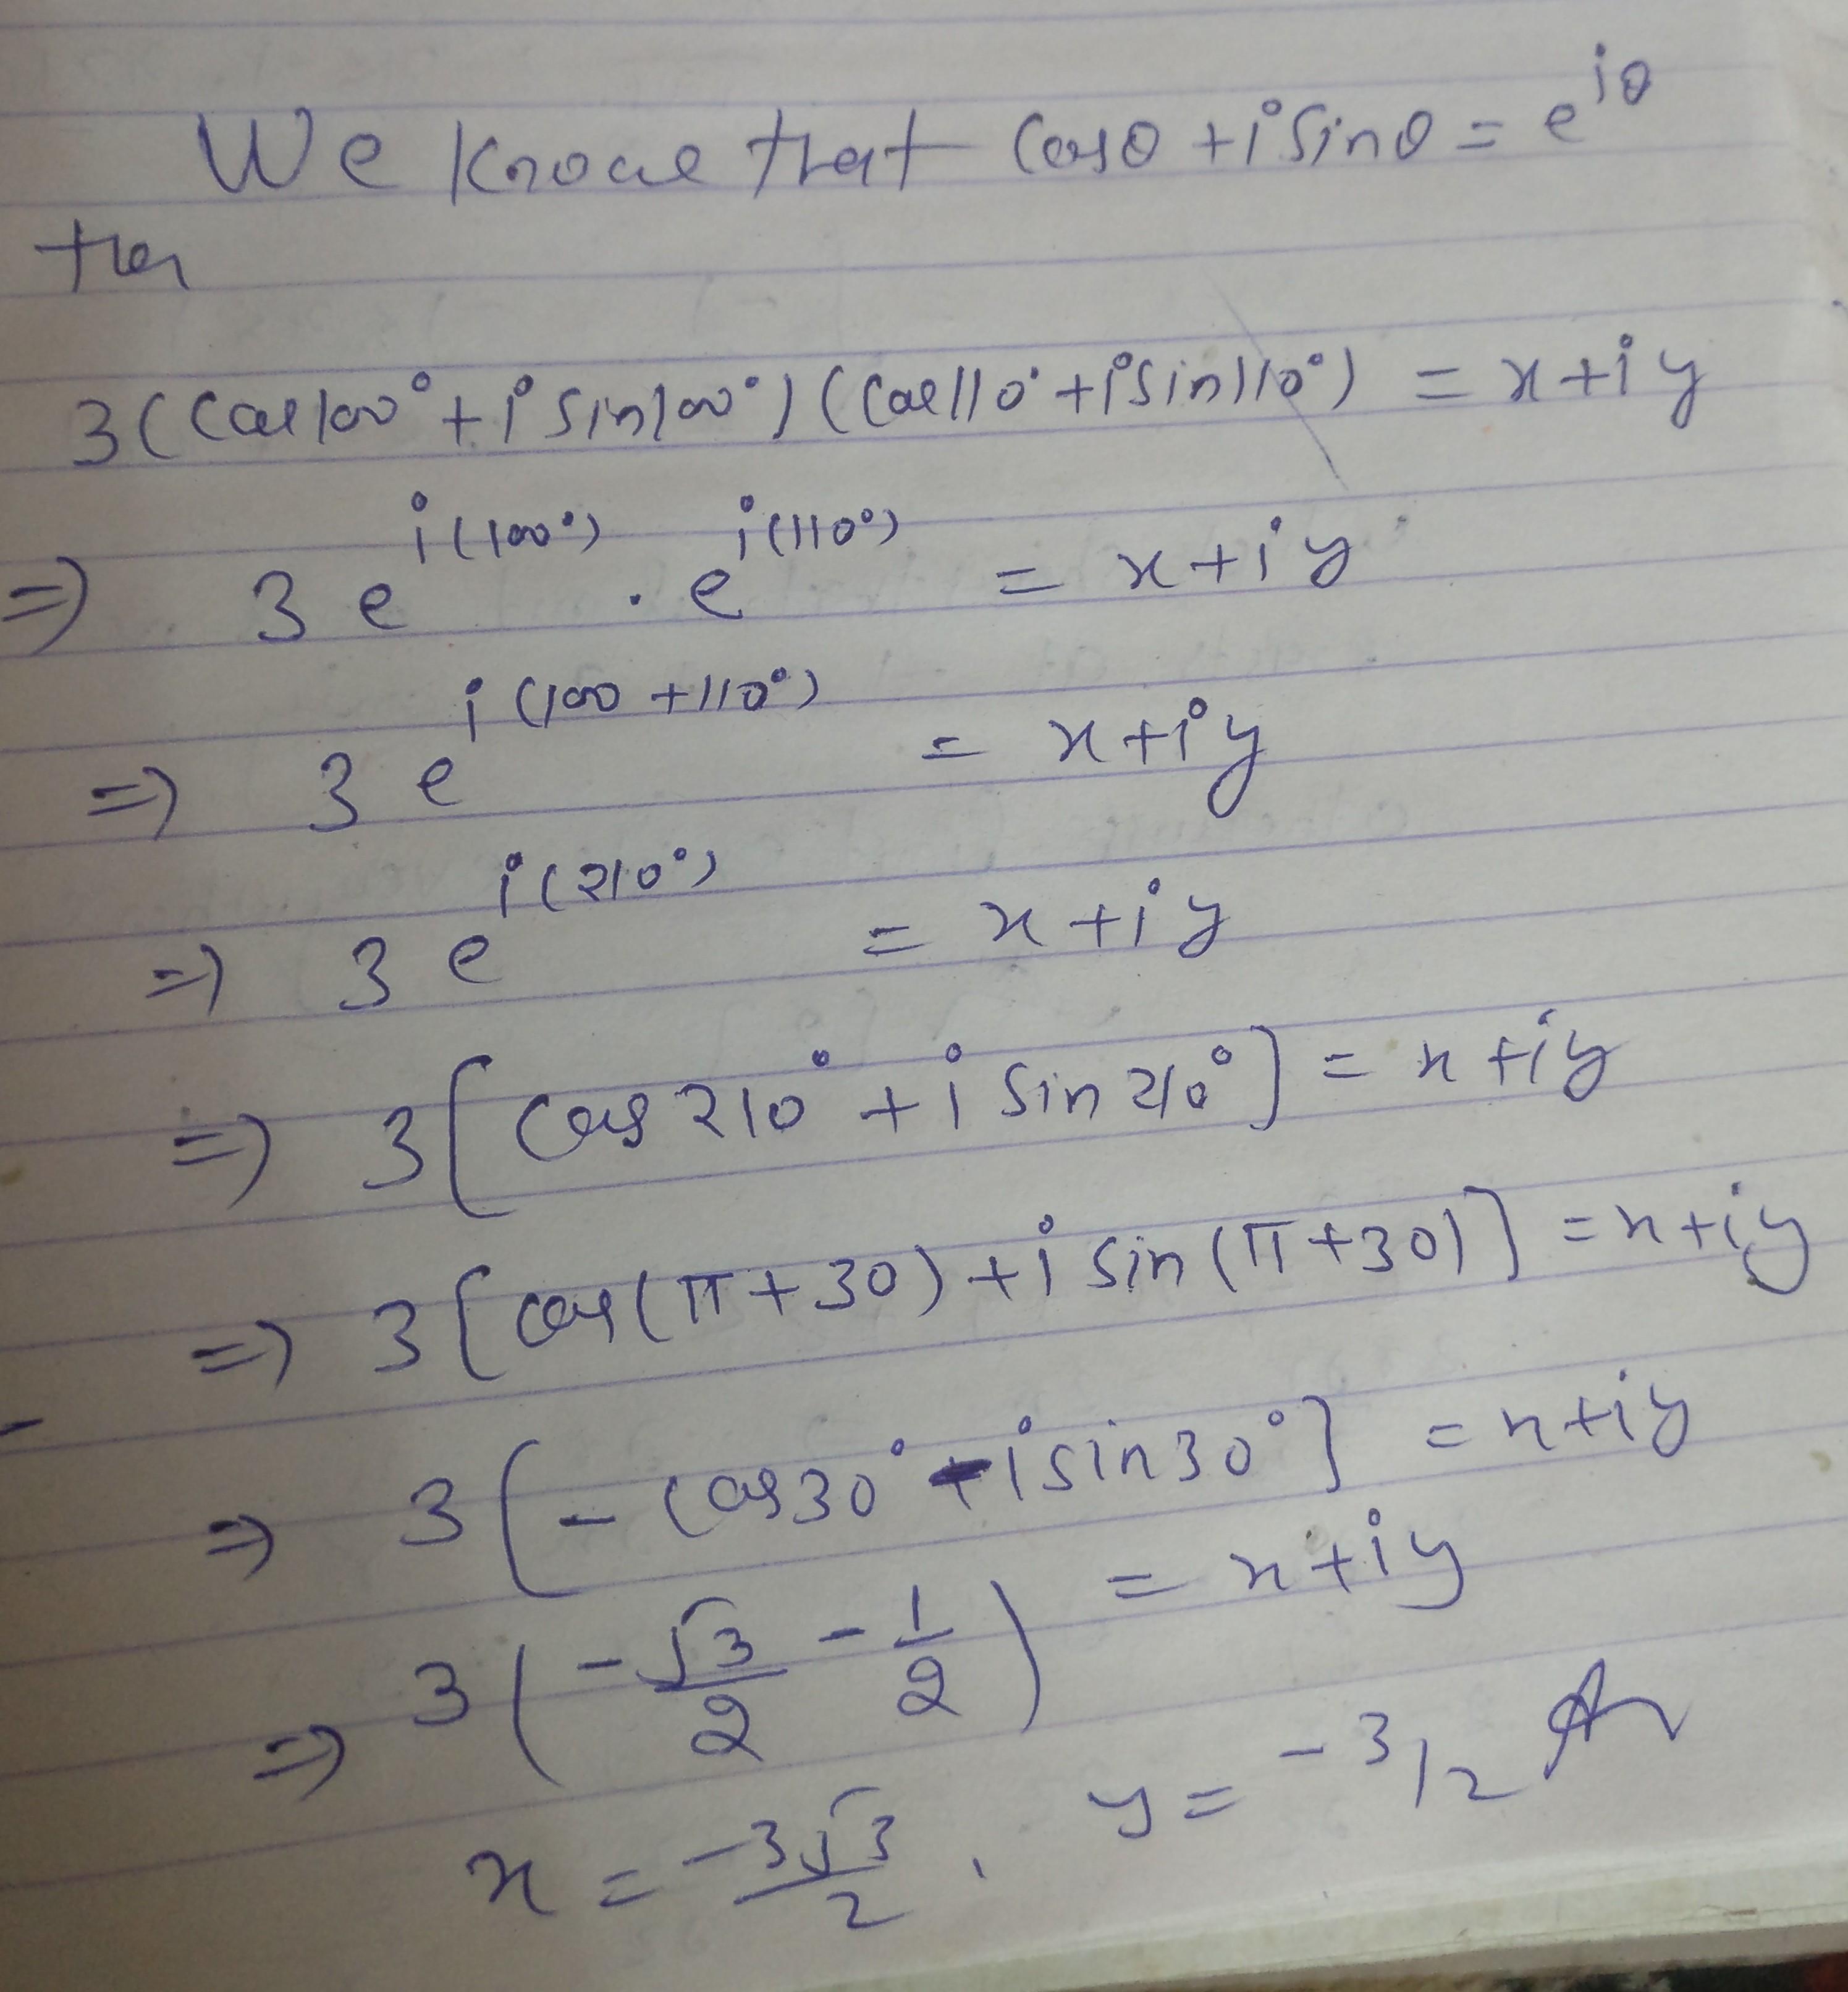 We know that cosθ + i sinθ = e^{iθ}
then
3(cos100° + i sin100°)(cos110° + i sin110°) = x + iy
⇒ 3 e^{i(100°)} . e^{i(110°)} = x + iy
⇒ 3 e^{i(100 + 110°)} = x + iy
⇒ 3 e^{i(210°)} = x + iy
⇒ 3[cos 210° + i sin 210°] = x + iy
⇒ 3[cos(π + 30) + i sin(π + 30)] = x + iy
⇒ 3[- cos30° - i sin30°] = x + iy
⇒ 3(-√3/2 - 1/2) = x + iy
x = -3√3/2 , y = -3/2